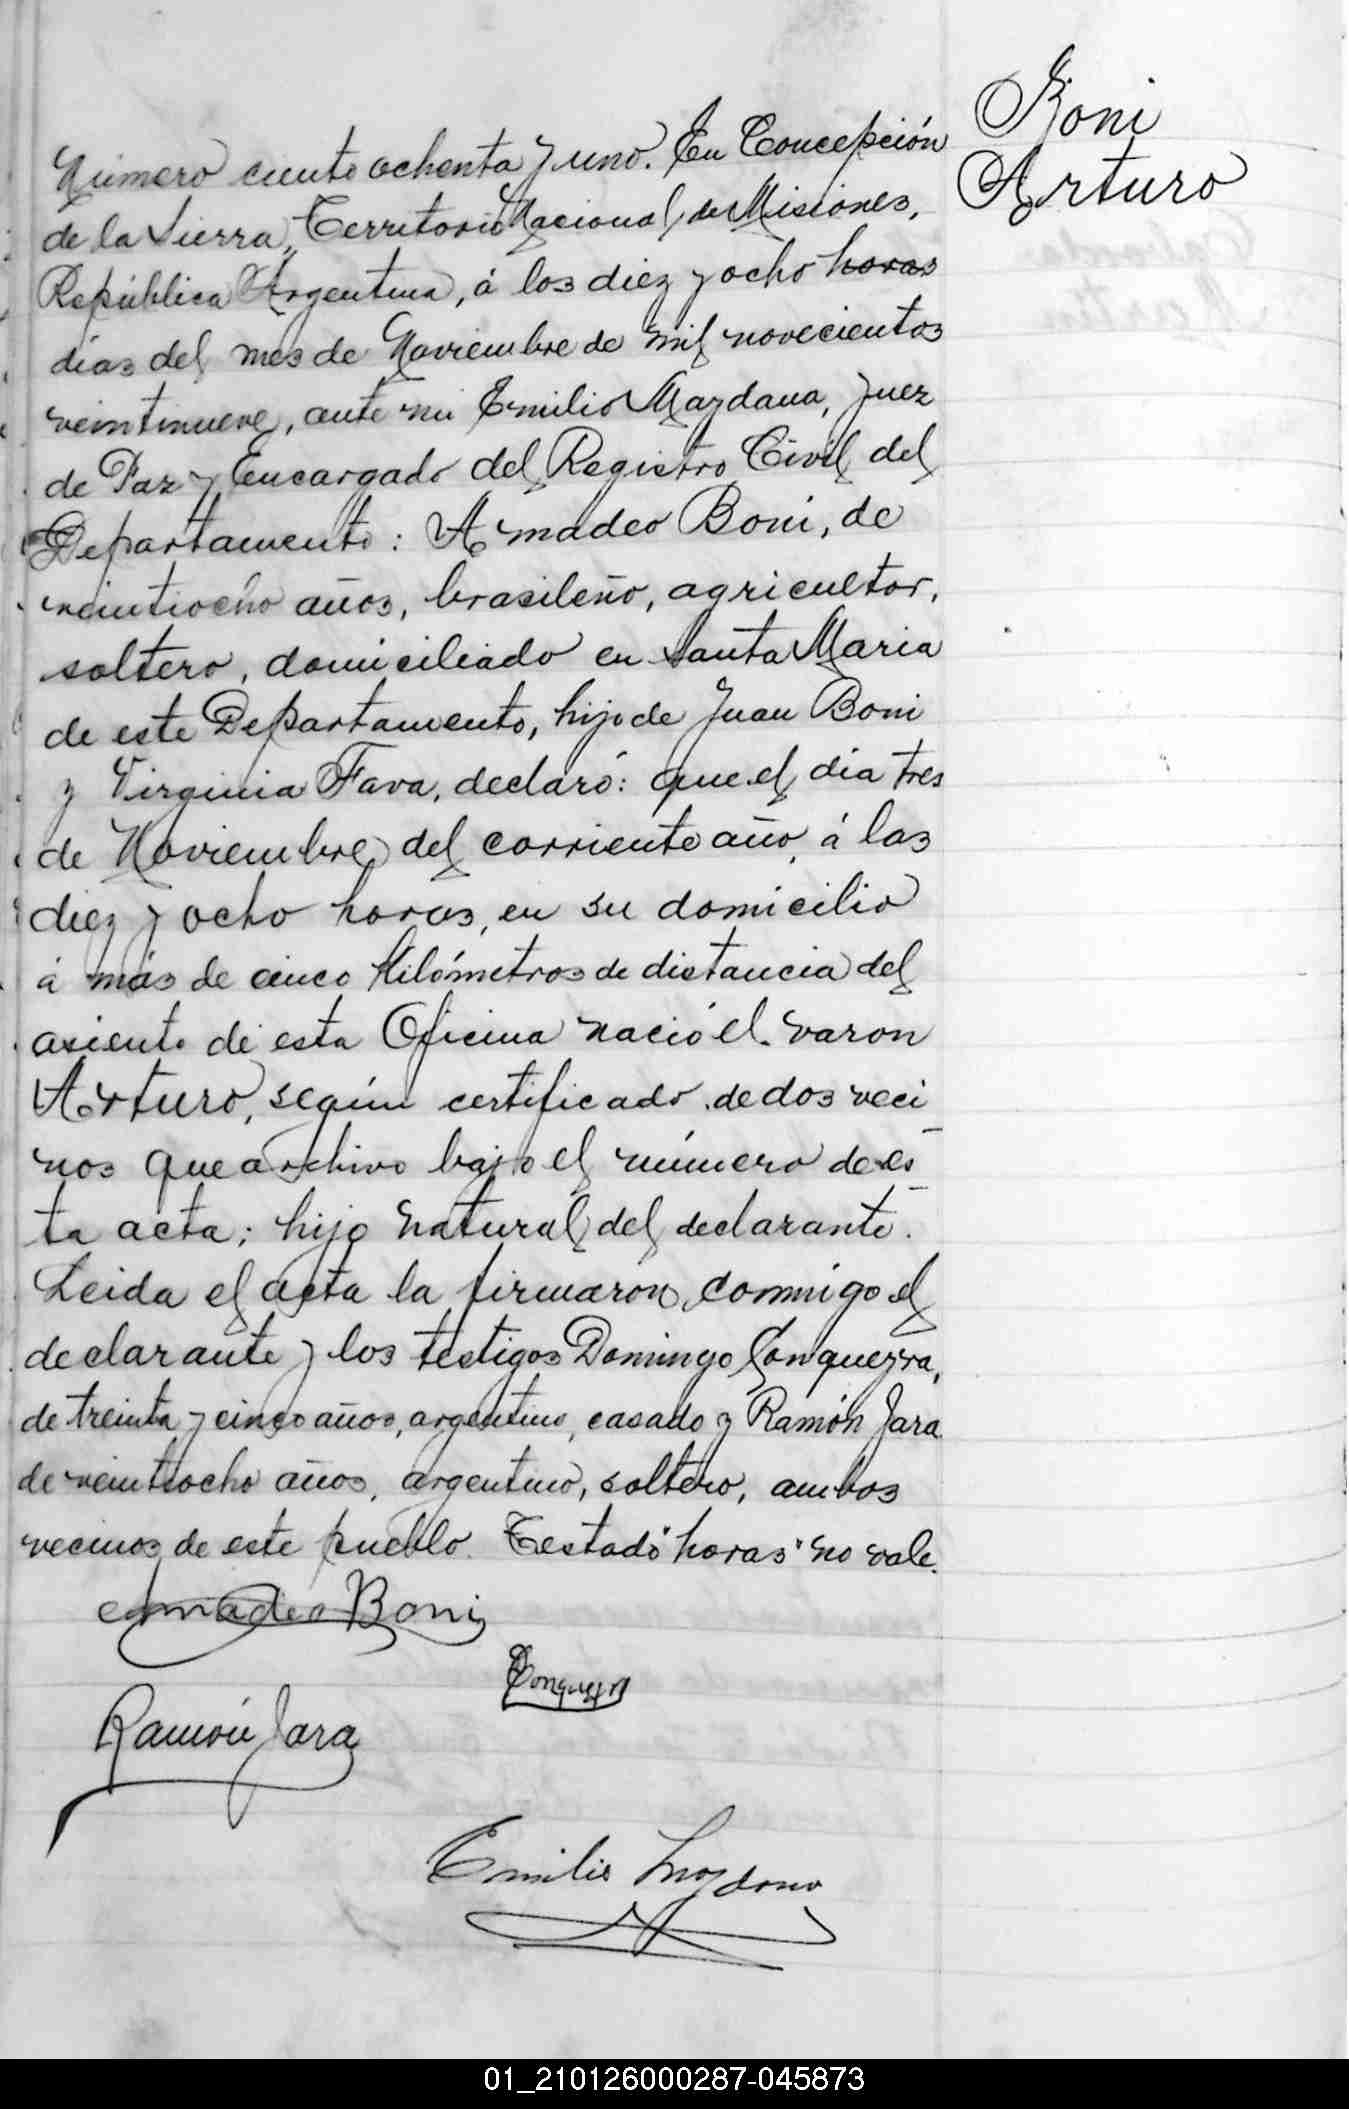 Boni
Arturo
Número ciento ochenta y uno. En Concepción
de la Sierra, Territorio Nacional de Misiones,
República Argentina, á los diez y ocho horas
días del mes de Noviembre de mil novecientos
veintinueve, ante mi Emilio Mazdana, Juez
de Paz y Encargado del Registro Civil del
Departamento: Amadeo Boni, de
veintiocho años, brasileño, agricultor,
soltero, domiciliado en Santa Maria
de este Departamento, hijo de Juan Boni
y Virginia Fava, declaró: que el día tres
de Noviembre del corriente año, á las
diez y ocho horas, en su domicilio
á más de cinco Kilómetros de distancia del
asiento de esta Oficina nació el varon
Arturo, según certificado de dos veci
nos que archivo bajo el número de es
ta acta; hijo natural del declarante.
Leida el acta la firmaron conmigo el
declarante y los testigos Domingo Conqueyra,
de treinta y cinco años, argentino, casado y Ramón Jara
de veintiocho años, argentino, soltero, ambos
vecinos de este pueblo. Testado "horas" no vale.
Amadeo Boni
Ramón Jara
Emilio
01_210126000287-045873